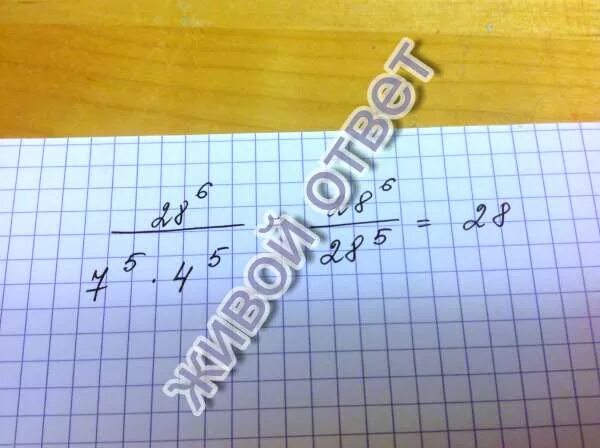 28^6 / 7^5 · 4^5 = 28^6 / 28^5 = 28
ЖИВОЙ ОТВЕТ